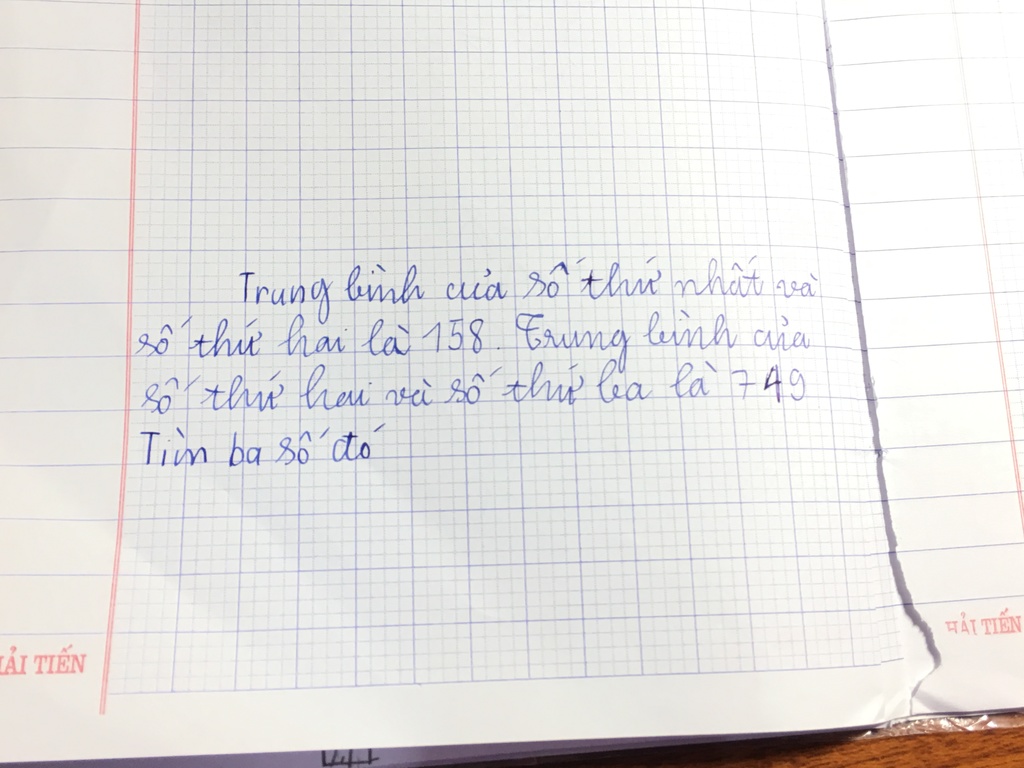 Trung bình của số thứ nhất và
số thứ hai là 158. Trung bình của
số thứ hai và số thứ ba là 749
Tìm ba số đó
ẢI TIẾN
HẢI TIẾN